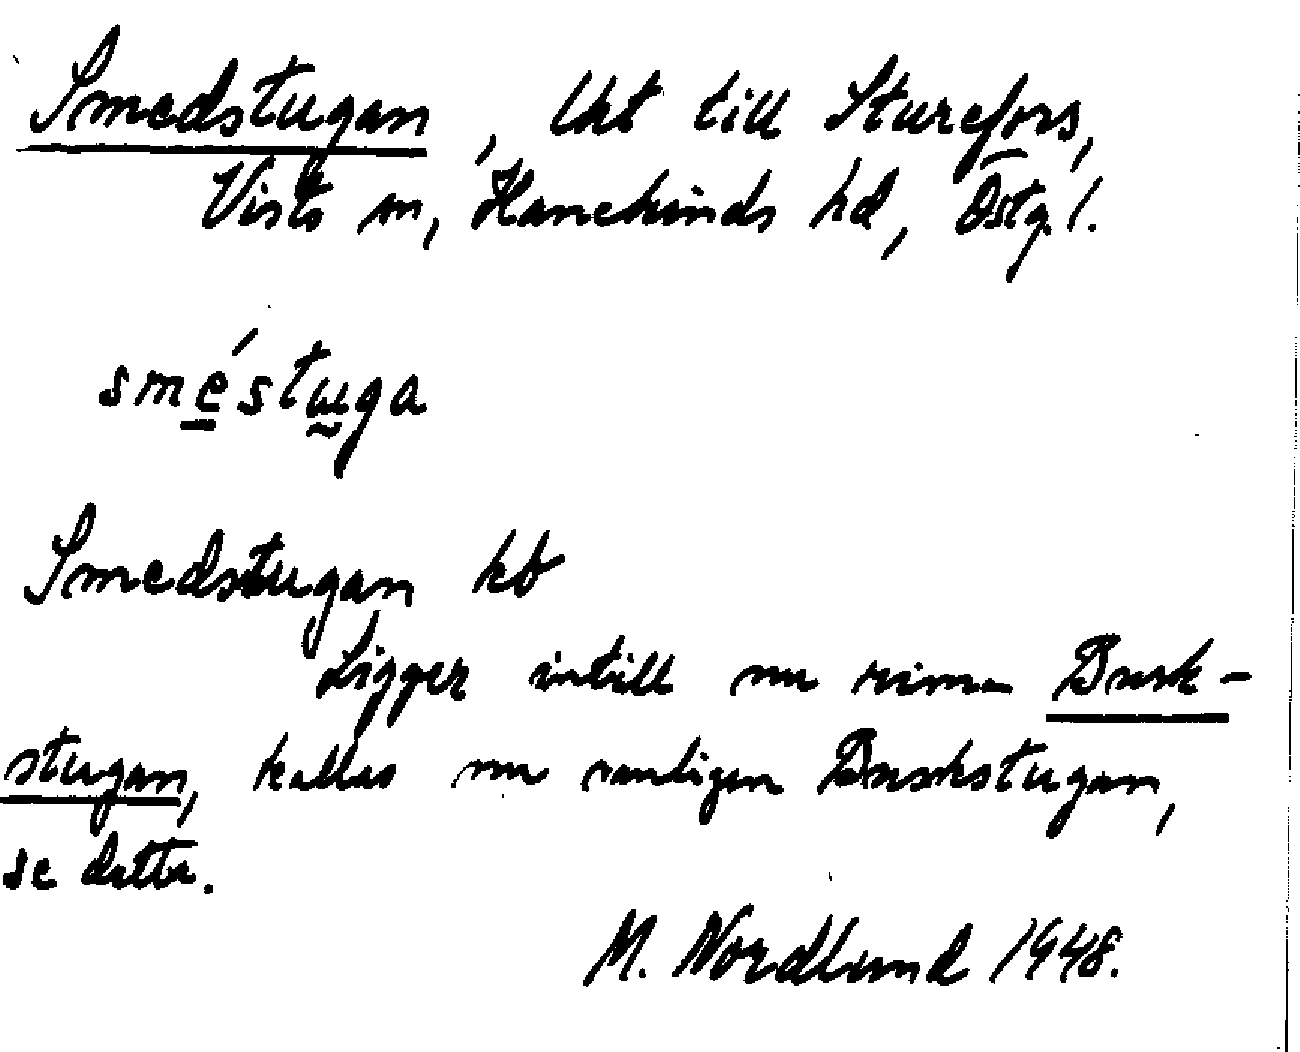 Smedstugan, lht till Sturefors,
Vists sn, Hanekinds hd, Östg. l.
sméstuga
Smedstugan kb
Ligger intill nu rivna Busk-
stugan, kallas nu vanligen Buskstugan,
se detta.
M. Nordlund 1948.